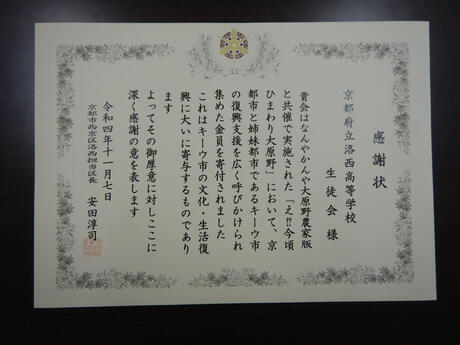 感謝状
京都府立洛西高等学校
生徒会 様
貴会はなんやかんや大原野農家版
と共催で実施された「え⁉今頃
ひまわり大原野」において、京
都市と姉妹都市であるキーウ市
の復興支援を広く呼びかけられ
集めた金員を寄付されました
これはキーウ市の文化・生活復
興に大いに寄与するものであり
ます
よってその御厚意に対しここに
深く感謝の意を表します
令和四年十一月七日
京都市西京区洛西担当区長 安田淳司